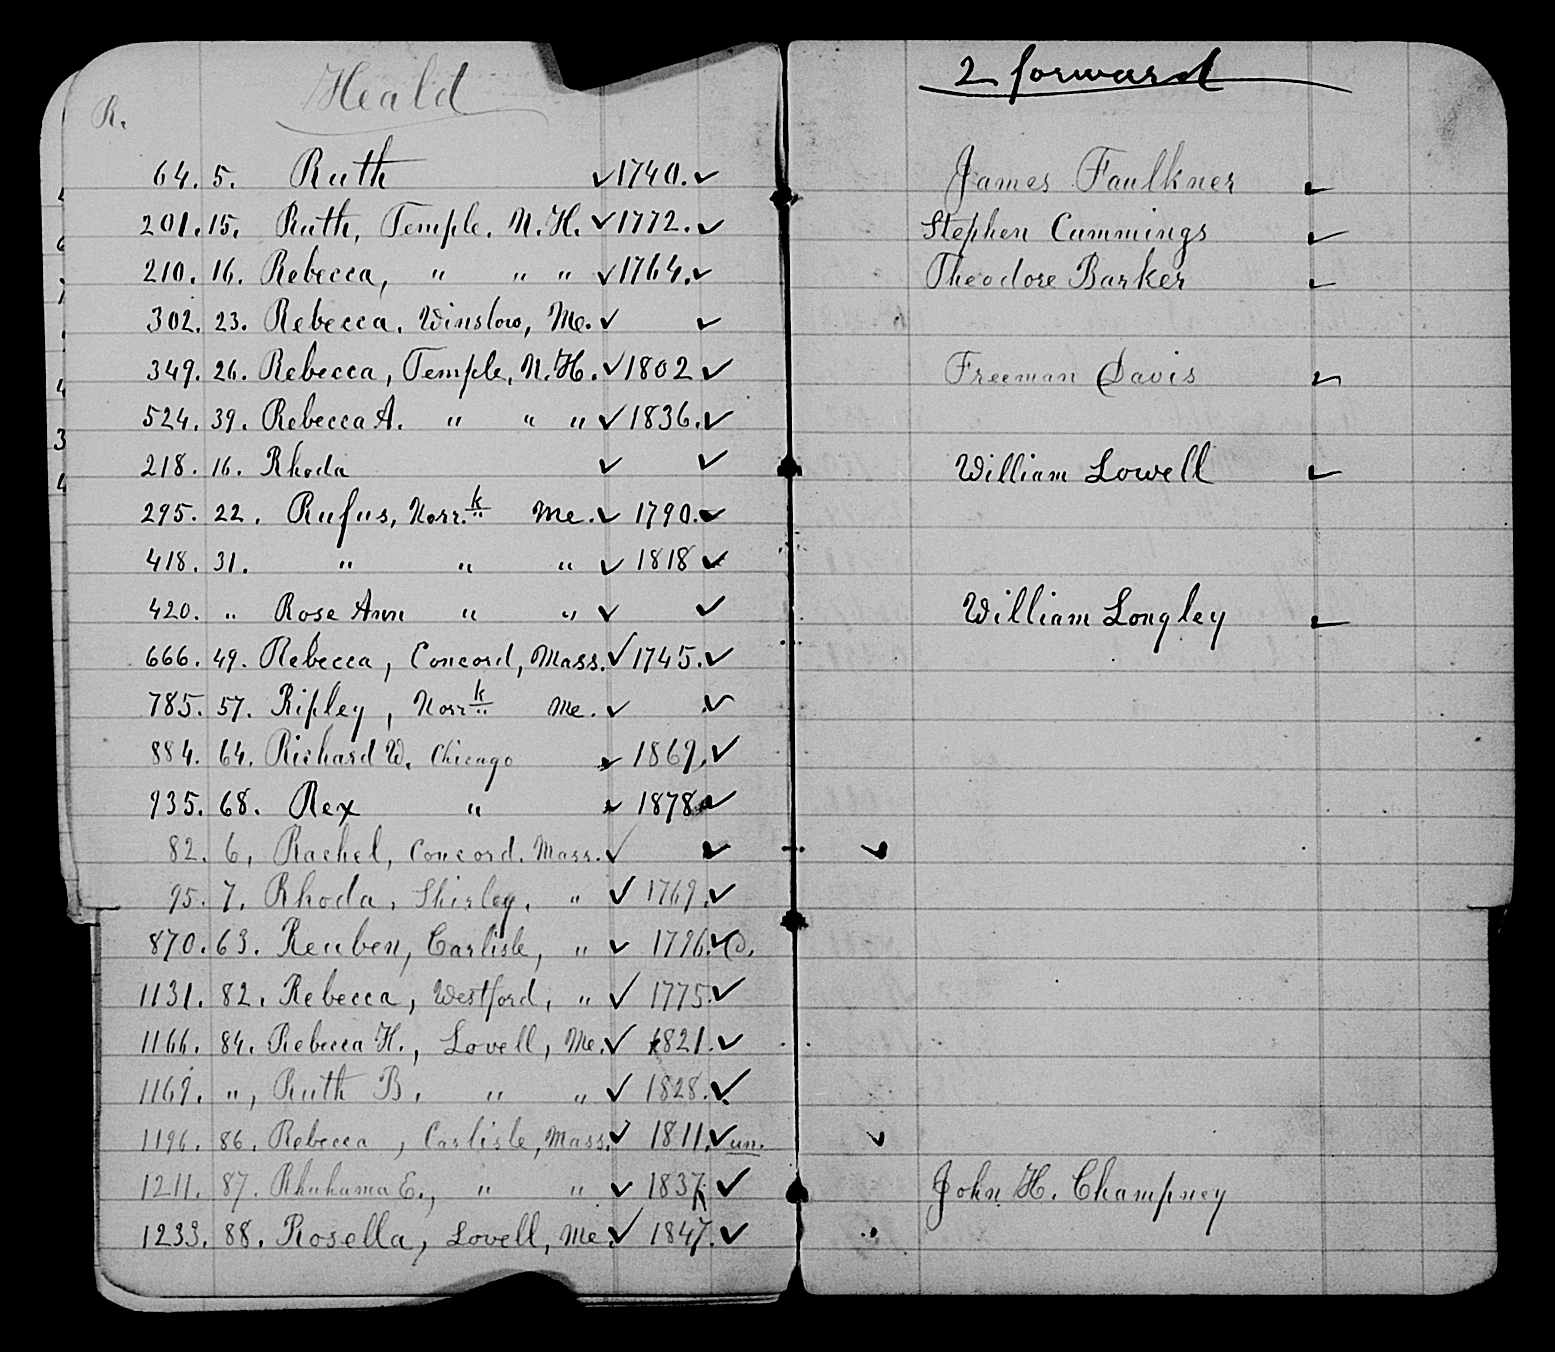 Heald
2 forward
R.
64. 5. Ruth ✓ 1740. ✓ James Faulkner ✓
201. 15. Ruth, Temple, N.H. ✓ 1772. ✓ Stephen Cummings ✓
210. 16. Rebecca, " " " ✓ 1764. ✓ Theodore Barker ✓
302. 23. Rebecca, Winslow, Me. ✓ ✓
349. 26. Rebecca, Temple, N.H. ✓ 1802 ✓ Freeman Davis ✓
524. 39. Rebecca A. " " " ✓ 1836. ✓
218. 16. Rhoda ✓ ✓ William Lowell ✓
295. 22. Rufus, Norr.k Me. ✓ 1790. ✓
418. 31. " " " ✓ 1818 ✓
420. " Rose Ann " " ✓ ✓ William Longley ✓
666. 49. Rebecca, Concord, Mass. ✓ 1745. ✓
785. 57. Ripley, Norr.k Me. ✓ ✓
884. 64. Richard W. Chicago ✓ 1869. ✓
935. 68. Rex " ✓ 1878 ✓
82. 6, Rachel, Concord. Mass. ✓ ✓ ✓
95. 7, Rhoda, Shirley, " ✓ 1769. ✓
870. 63. Reuben, Carlisle, " ✓ 1796. ✓ d.
1131. 82. Rebecca, Westford, " ✓ 1775. ✓
1166. 84. Rebecca H., Lovell, Me. ✓ 1821. ✓
1169. ", Ruth B. " " ✓ 1828. ✓
1196. 86. Rebecca, Carlisle, Mass. ✓ 1811. ✓ un. ✓
1211. 87. Rhuhama E., " " ✓ 1837 ✓ John H. Champney
1233. 88. Rosella, Lovell, Me. ✓ 1847. ✓